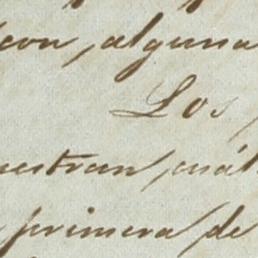 con alguna
Los
uestran, cuál
primera de